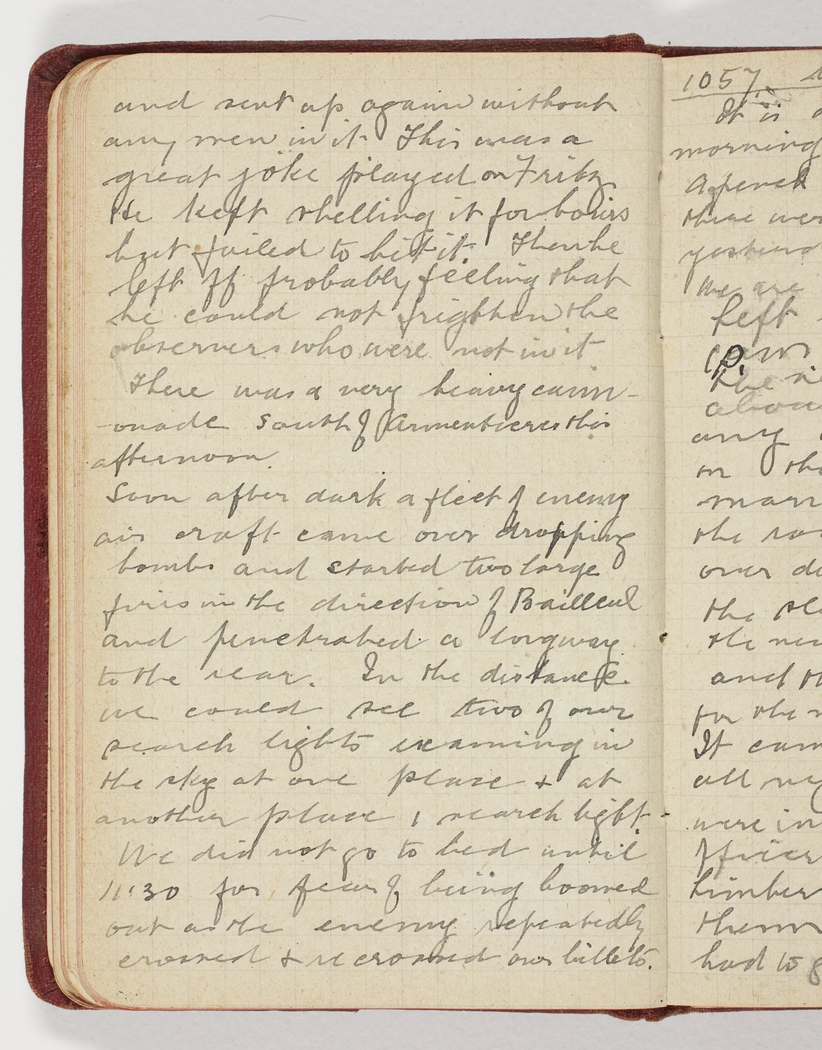 and sent up again without
any men in it This was a
great joke played on Fritz
He kept shelling it for hours
but failed to hit it. Then he
left off probably feeling that
he could not frighten the
observers who were not in it
There was a very heavy cann-
-onade South of Armentieres this
afternoon.
Soon after dark a fleet of enemy
air craft came over dropping
bombs and started two large
fires in the direction of Bailleul
and penetrated a long way
to the rear. In the distance
we could see two of our
search lights examining in
the sky at one place & at
another place 1 search light.
We did not go to bed until
11.30 for fear of being boomed
out as the enemy repeatedly
crossed & recrossed our billets.
1057
It is
morning
opened
there were
yesterd
we are
left
the
abou
any
on the
marr
the
over
the
the
and th
for the
It cam
all
were in
officer
limber
them
had to